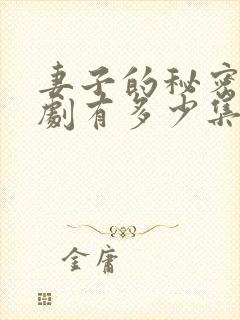 妻子的秘密
劇有多少集
金庸